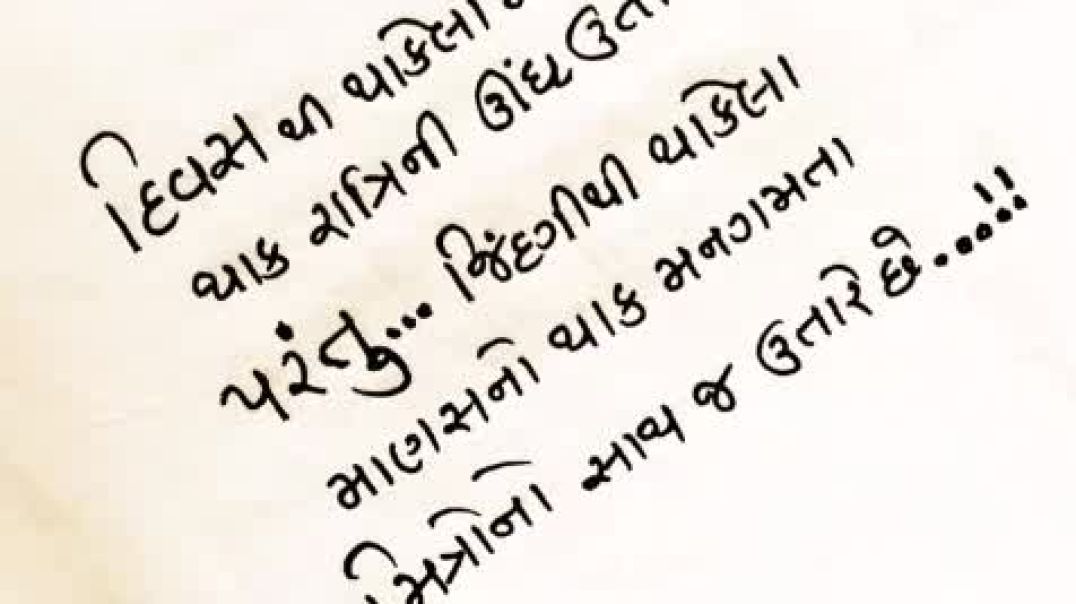 દિવસ થી થાકેલા
થાક રાત્રિની ઊંઘ
પરંતુ... જિંદગીથી થાકેલા
માણસનો થાક મનગમતા
મિત્રોનો સાથ જ ઉતારે છે....!!